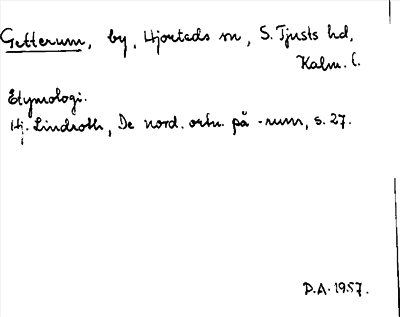 Getterum, by, Hjorteds sn, S. Tjusts hd,
Kalm. l.
Etymologi.
Hj. Lindroth, De nord. ortn. på -rum, s. 27.
D.A. 1957.